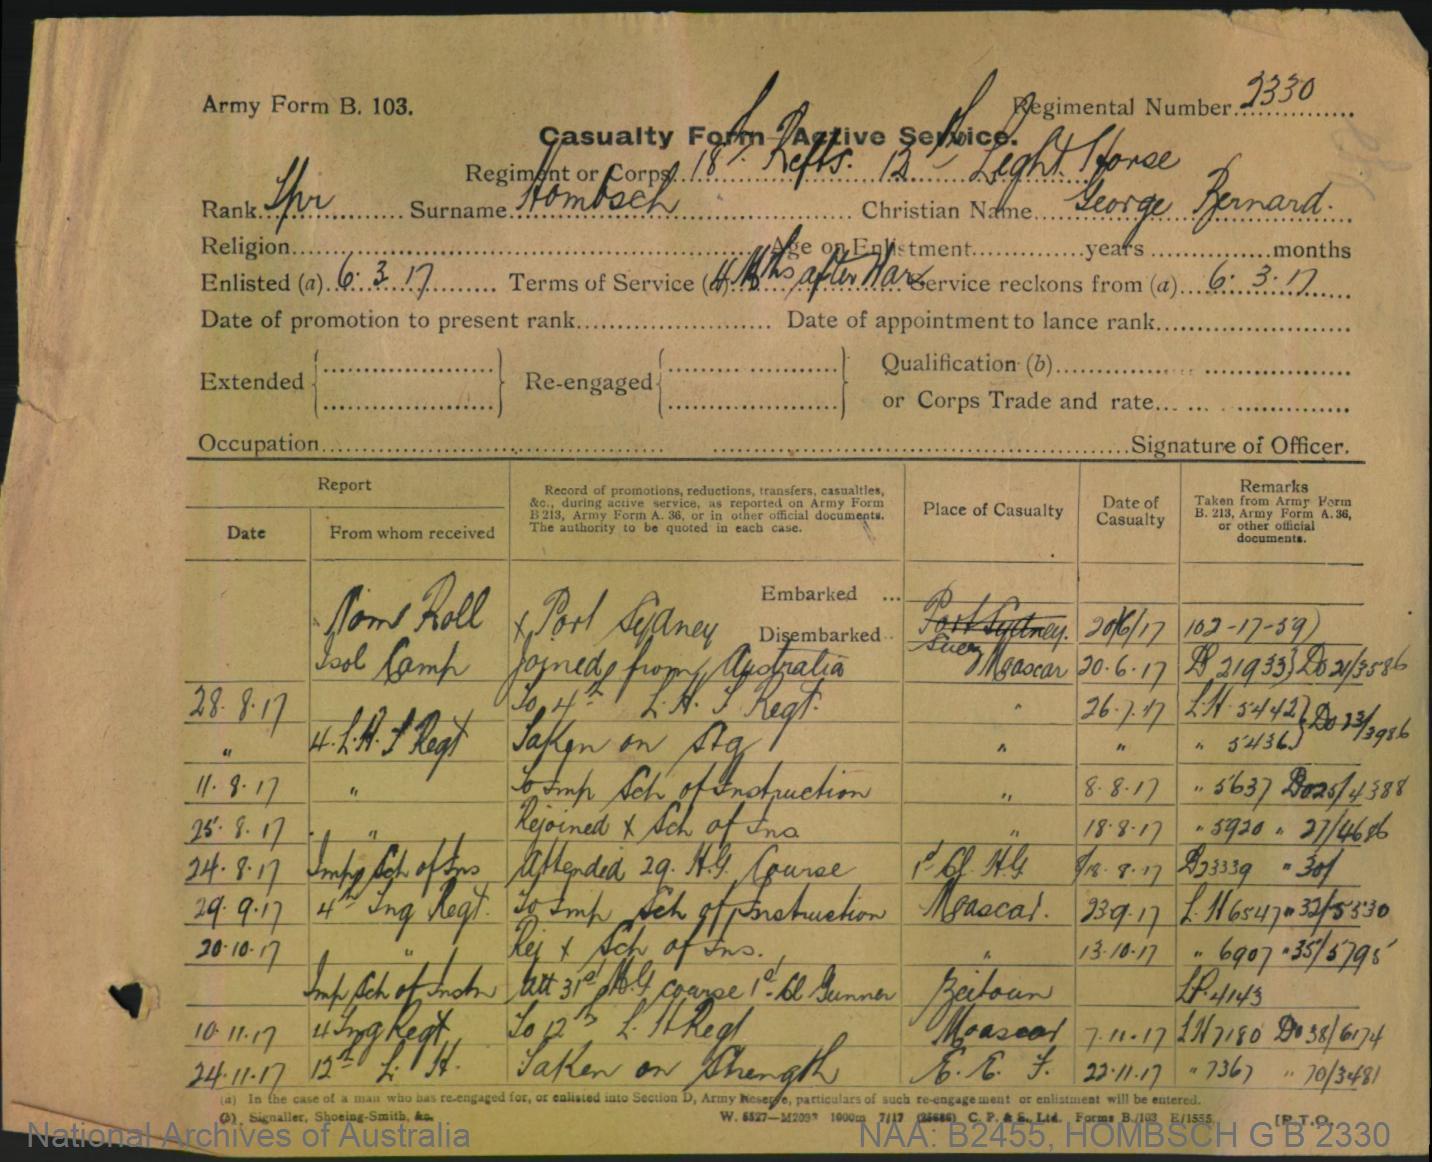 Army Form B. 103.
Regimental Number 2330
Casualty Form Active Service.
Regiment or Corps 18th Refts. 12th Light Horse
Rank Tpr Surname Hombsch Christian Name George Bernard.
Religion Age on Enlistment years months
Enlisted (a) 6.3.17 Terms of Service (a) 4 Mths after War Service reckons from (a) 6.3.17
Date of promotion to present rank Date of appointment to lance rank
Extended Re-engaged Qualification (b)
or Corps Trade and rate
Occupation Signature of Officer.
Report
Date From whom received
Record of promotions, reductions, transfers, casualties,
&c., during active service, as reported on Army Form
B 213, Army Form A. 36, or in other official documents.
The authority to be quoted in each case.
Place of Casualty
Date of
Casualty
Remarks
Taken from Army Form
B. 213, Army Form A. 36,
or other official
documents.
Embarked ...
Nom Roll x Port Sydney Disembarked Port Sydney. Suez 20/6/17 102-17-59)
Isol Camp Joined from Australia Moascar 20.6.17 B 21933) Do 21/3586
28.8.17 To 4th L.H. T Regt. " 26.7.17 L.H 5442) Do 23/3986
" 4. L.H. T Regt Taken on Stg " " " 5436)
11.8.17 " To Imp Sch of Instruction " 8.8.17 " 5637 Do 25/4388
25.8.17 " Rejoined x Sch of Ins " 18.8.17 " 5920 " 27/4686
24.8.17 Imp Sch of Ins Attended 29. H.G. Course 1st Cl. H.G 8/18.8.17 B23339 " 30/
29.9.17 4th Tng Regt. To Imp Sch of Instruction Moascar. 23.9.17 L.H 6547 " 32/5530
20.10.17 " Rej x Sch of Ins. " 13.10.17 " 6907 " 35/5795
Imp Sch of Instn Att 31st M.G course 1st Cl Gunner Zeitoun LP. 4143
10.11.17 4 Tng Regt To 12th L. H Regt Moascar 7.11.17 L H 7180 Do 38/6174
24.11.17 12th L. H. Taken on Strength E. E. F. 22.11.17 " 7367 " 70/3481
(a) In the case of a man who has re-engaged for, or enlisted into Section D, Army Reserve, particulars of such re-engagement or enlistment will be entered.
(b). Signaller, Shoeing-Smith, &c. W. 5527—M2093 1000m 7/17 (25686) C. P. & S., Ltd. Forms B./103 E/1555 [P.T.O.
National Archives of Australia NAA: B2455, HOMBSCH G B 2330